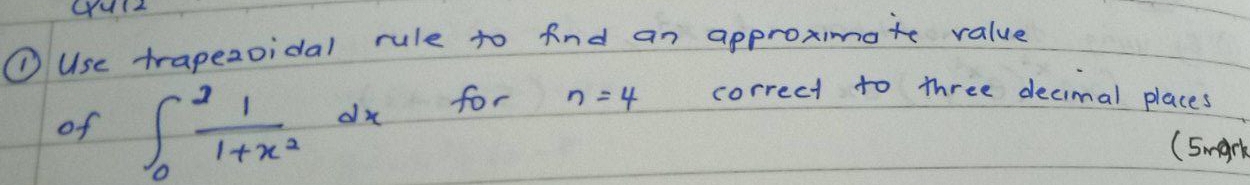 Quiz
① Use trapezoidal rule to find an approximate value
of ∫₀² 1/(1+x²) dx for n=4 correct to three decimal places
(5mark